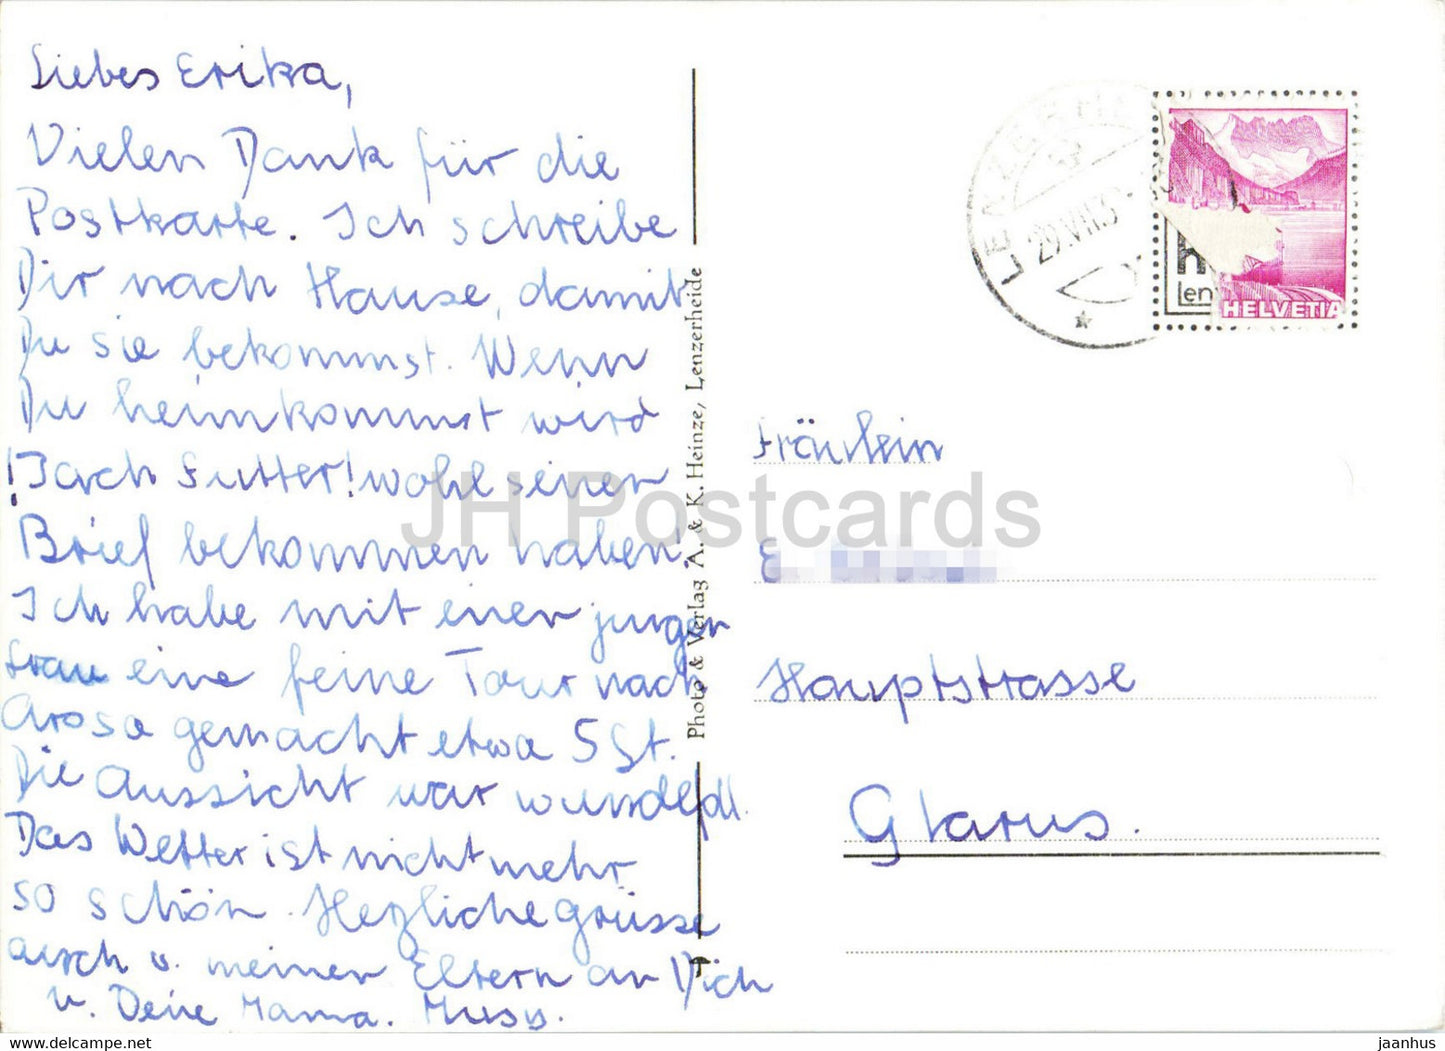 Liebes Erika,
Vielen Dank für die
Postkarte. Ich schreibe
Dir nach Hause, damit
Du sie bekommst. Wenn
Du heimkommst wird
Futter! wohl seinen
Brief bekommen haben!
Ich habe mit einer jungen
Frau eine feine Tour nach
Arosa gemacht etwa 5 St.
Die Aussicht war
Das Wetter ist nicht mehr
so schön. Herzliche Grüsse
auch v. meinen Eltern an Dich
u. Deine Mama. Hussy.
Photo & Verlag A. & K. Heinze, Lenzerheide
29.VII.3
Len
HELVETIA
Fräulein
E
Hauptstrasse
Glarus.
JH Postcards
jaanhus